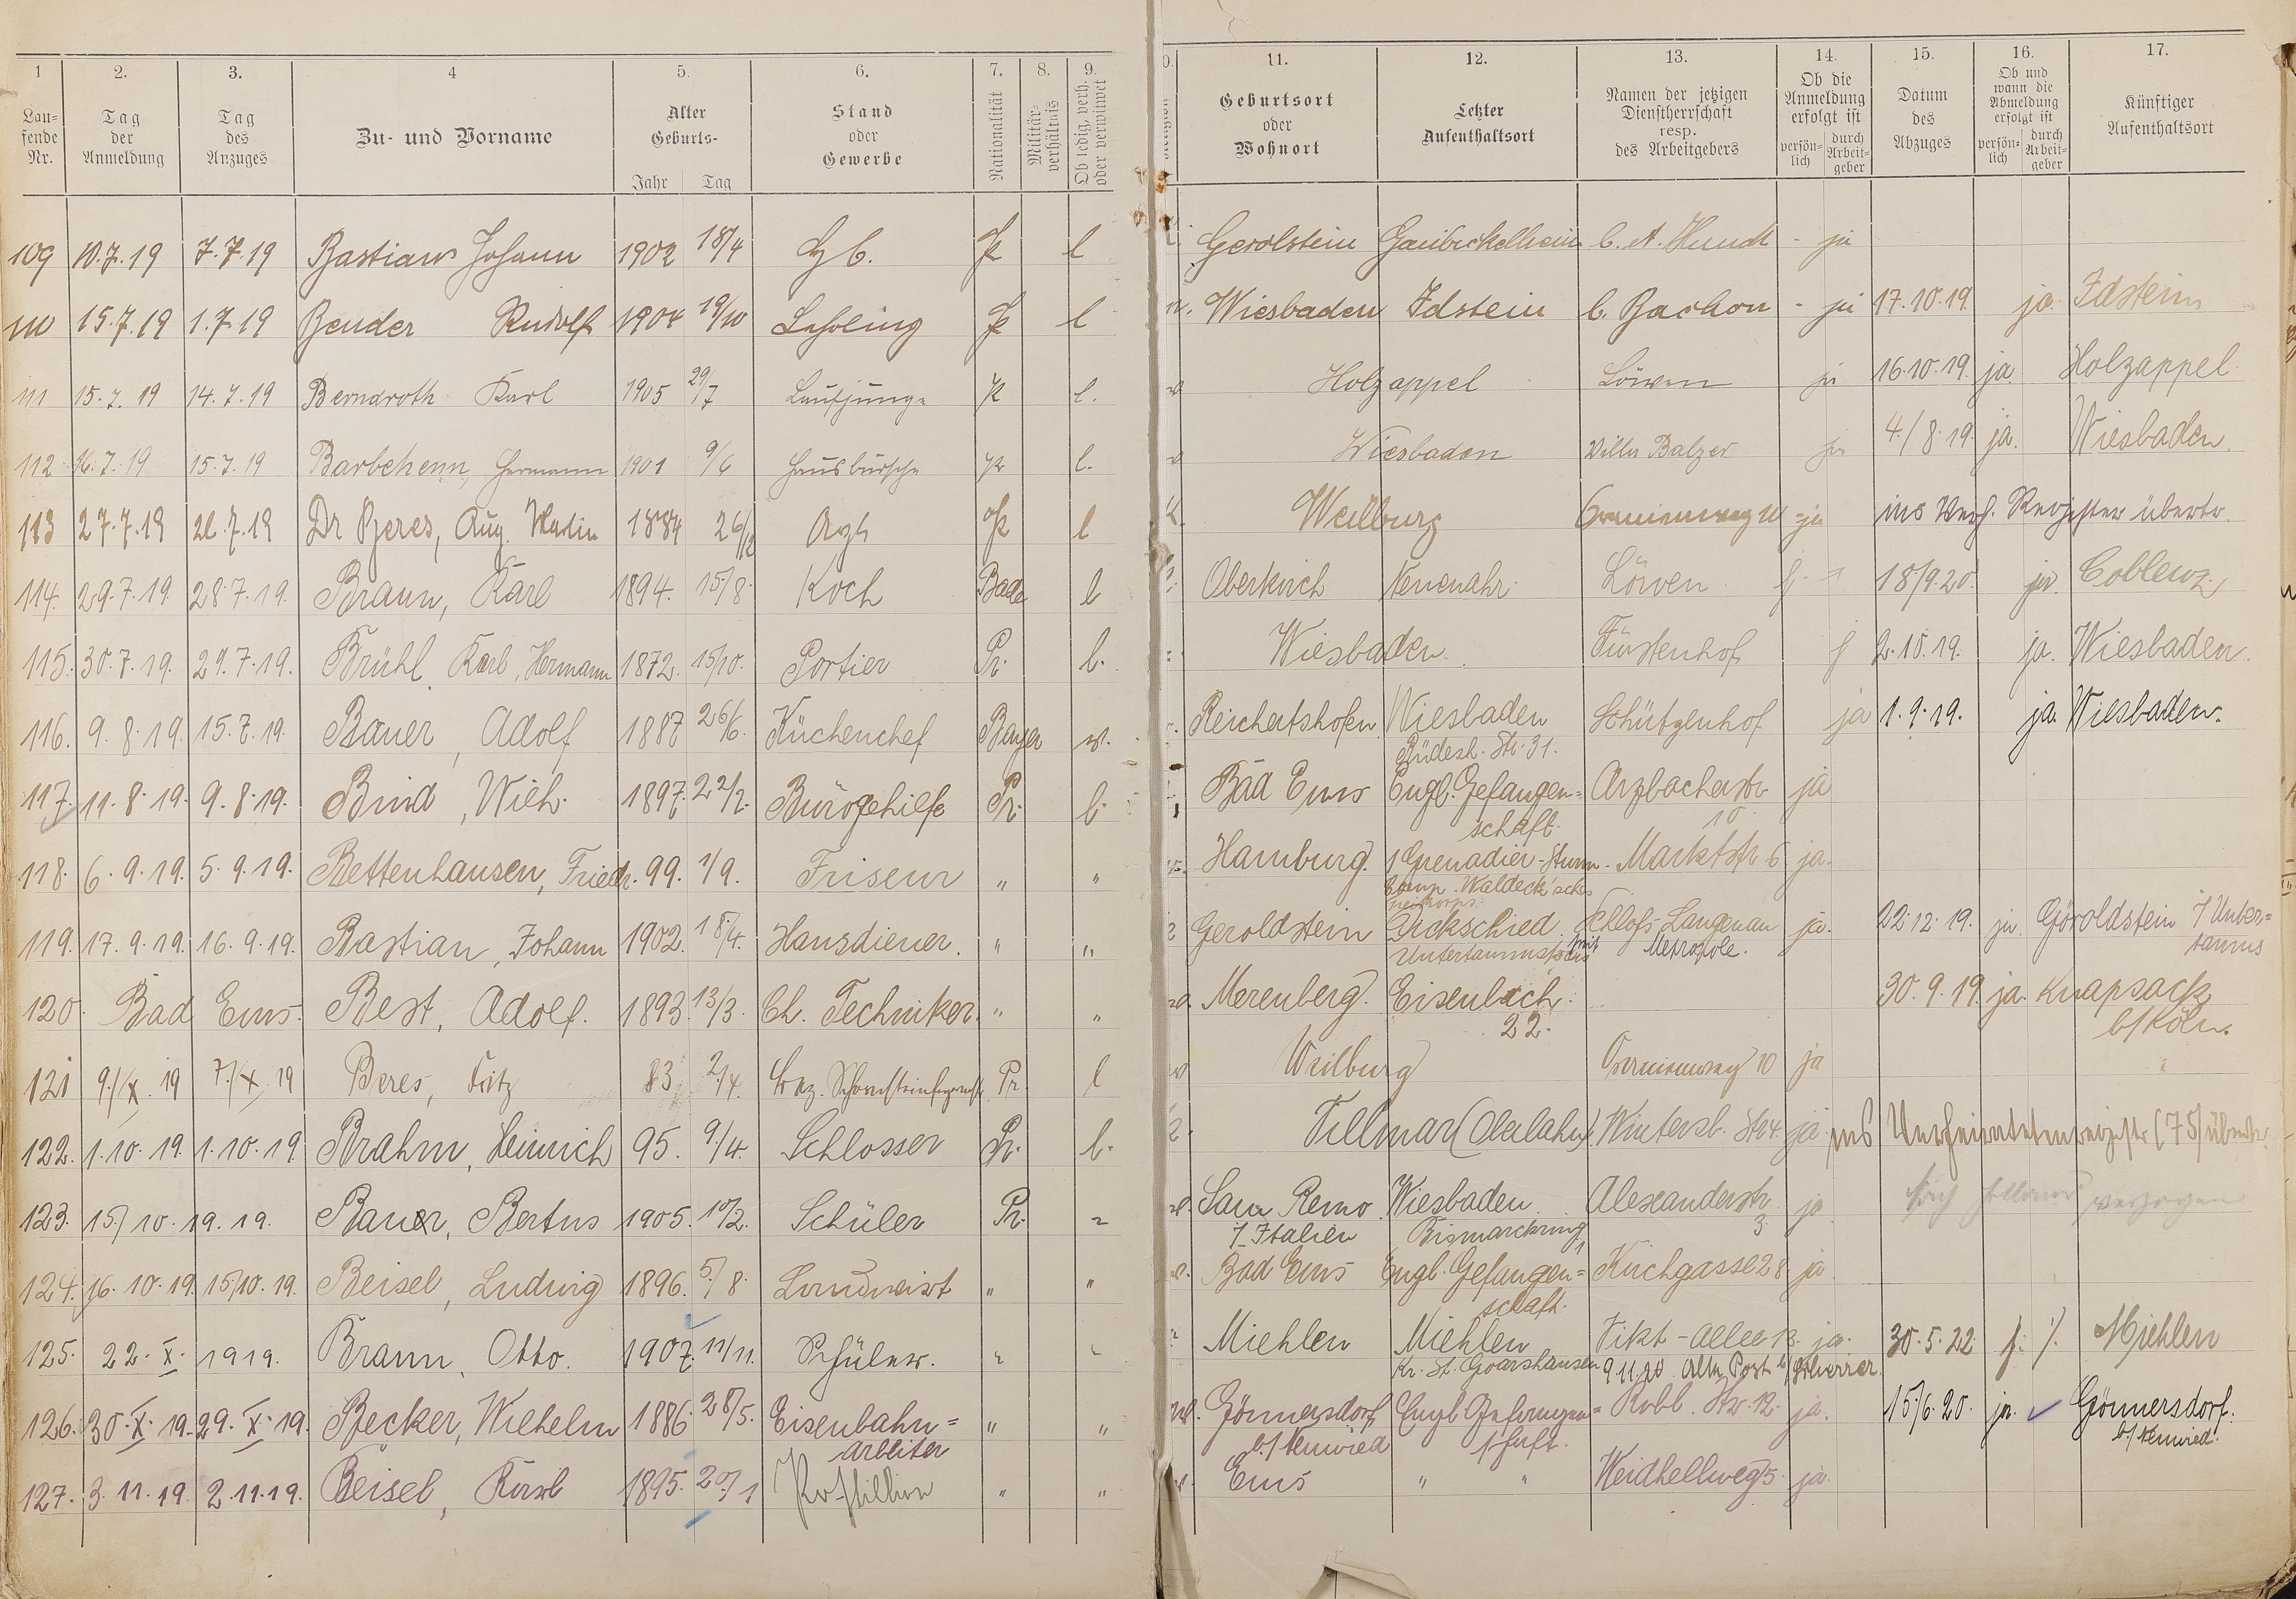 1 2. 3. 4 5. 6. 7. 8. 9. 11. 12. 13. 14. 15. 16. 17.
Lau- fende Nr. Tag der Anmeldung Tag des Anzuges Zu- und Vorname Alter Geburts- Jahr Tag Stand oder Gewerbe Nationalität Militär- verhältnis Ob ledig, verh. oder verwitwet Geburtsort oder Wohnort Letzter Aufenthaltsort Namen der jetzigen Dienstherrschaft resp. des Arbeitgebers Ob die Anmeldung erfolgt ist persön- lich durch Arbeit- geber Datum des Abzuges Ob und wann die Abmeldung erfolgt ist persön- lich durch Arbeit- geber Künftiger Aufenthaltsort
109 10.7.19 7.7.19 Bastian Johann 1902 18/4 l Gerolstein - ja
110 15.7.19 1.7.19 Bender Rudolf 1904 19/10 Lehrling l Wiesbaden Idstein - ja 17.10.19 ja Idstein
111 15.7.19 14.7.19 Berndroth Karl 1905 29/7 Laufjunge l. Holzappel Löwen ja 16.10.19. ja Holzappel
112 16.7.19 15.7.19 Barbehenn, Hermann 1901 9/6 Hausbursche l. Wiesbaden Villa Balzer ja 4./8.19. ja. Wiesbaden.
113 27.7.19 21.7.19 Dr Beres, Aug. 1884 26/12 Arzt l Weilburg Oranienweg 10 - ja ins Verh. Register übertr.
114. 29.7.19. 28.7.19. Braun, Karl 1894. 15/8. Koch Bade l Oberkirch Neuenahr. Löwen 18/9.20. ja. Coblenz
115. 30.7.19. 29.7.19. Brühl, Karl, Hermann 1872. 15/10. Portier Pr. l. Wiesbaden. Fürstenhof 2.10.19. ja. Wiesbaden.
116. 9.8.19. 15.7.19. Bauer, Adolf 1887 26/6. Küchenchef Bayer w. Reichertshofen Wiesbaden Schützenhof ja 1.9.19. ja. Wiesbaden.
Rüdesh. Str. 31.
117. 11.8.19. 9.8.19. Bind, Wilh. 1897. 22/2. Bürogehilfe Pr. l. Bad Ems Engl. Gefangen= Arzbacherstr. ja
schaft. 10
118. 6.9.19. 5.9.19. Bettenhausen, Friedr. 99. 1/9. Friseur " " Hamburg. 1 Grenadier-Sturm- Marktstr 6 ja.
Comp. Waldeck'sches
119. 17.9.19. 16.9.19. Bastian, Johann 1902. 18/4. Hausdiener. " " Geroldstein Dickschied Schloß Langenau ja. 22.12.19. ja. Geroldstein i/Unter=
Untertaunuskreis Metropole. taunus
120. Bad Ems. Best, Adolf. 1893. 13/3. Ch. Techniker. " " Merenberg. Eisenbach. 30.9.19. ja. Knapsack
22. b/Köln.
121 9./X.19 7./X.19 Beres, Fritz 83 2/4. Bez. Schornsteinfegermstr. Pr. l Weilburg Oranienweg 10 ja
122. 1.10.19. 1.10.19 Brahm, Heinrich 95. 9/4. Schlosser Pr. l. Villmar (Oberlahn). Wintersb. Str 4. ja. ins Verheiratetenregister (75) übertr.
123. 15./10.19.19. Bauer, Bertus 1905. 10/2. Schüler Pr. " San Remo Wiesbaden. Alexanderstr. ja verzogen
i/Italien Bismarckring 1 3.
124. 16.10.19. 15/10.19. Beisel, Ludwig 1896. 5./8. Landwirt " " Bad Ems Engl. Gefangen= Kirchgasse 28 ja
schaft.
125. 22.X.1919. Braun, Otto. 1907. 11/11. Schüler. " " Miehlen Miehlen Vikt-Allee 18. ja. 30.5.22 Miehlen
Kr. St. Goarshausen 9.11.20 Alte Post b/
126. 30.X.19. 29.X.19. Becker, Wilhelm 1886 28/5. Eisenbahn= " " Gönnersdorf Engl Gefangen= Kobl. Str. 12. ja. 15/6.20. ja. Gönnersdorf.
arbeiter b./Neuwied schaft. b./Neuwied.
127. 3.11.19. 2.11.19. Beisel, Karl 1895. 20/1 Postillion " " Ems " " Weidhellweg 5. ja.